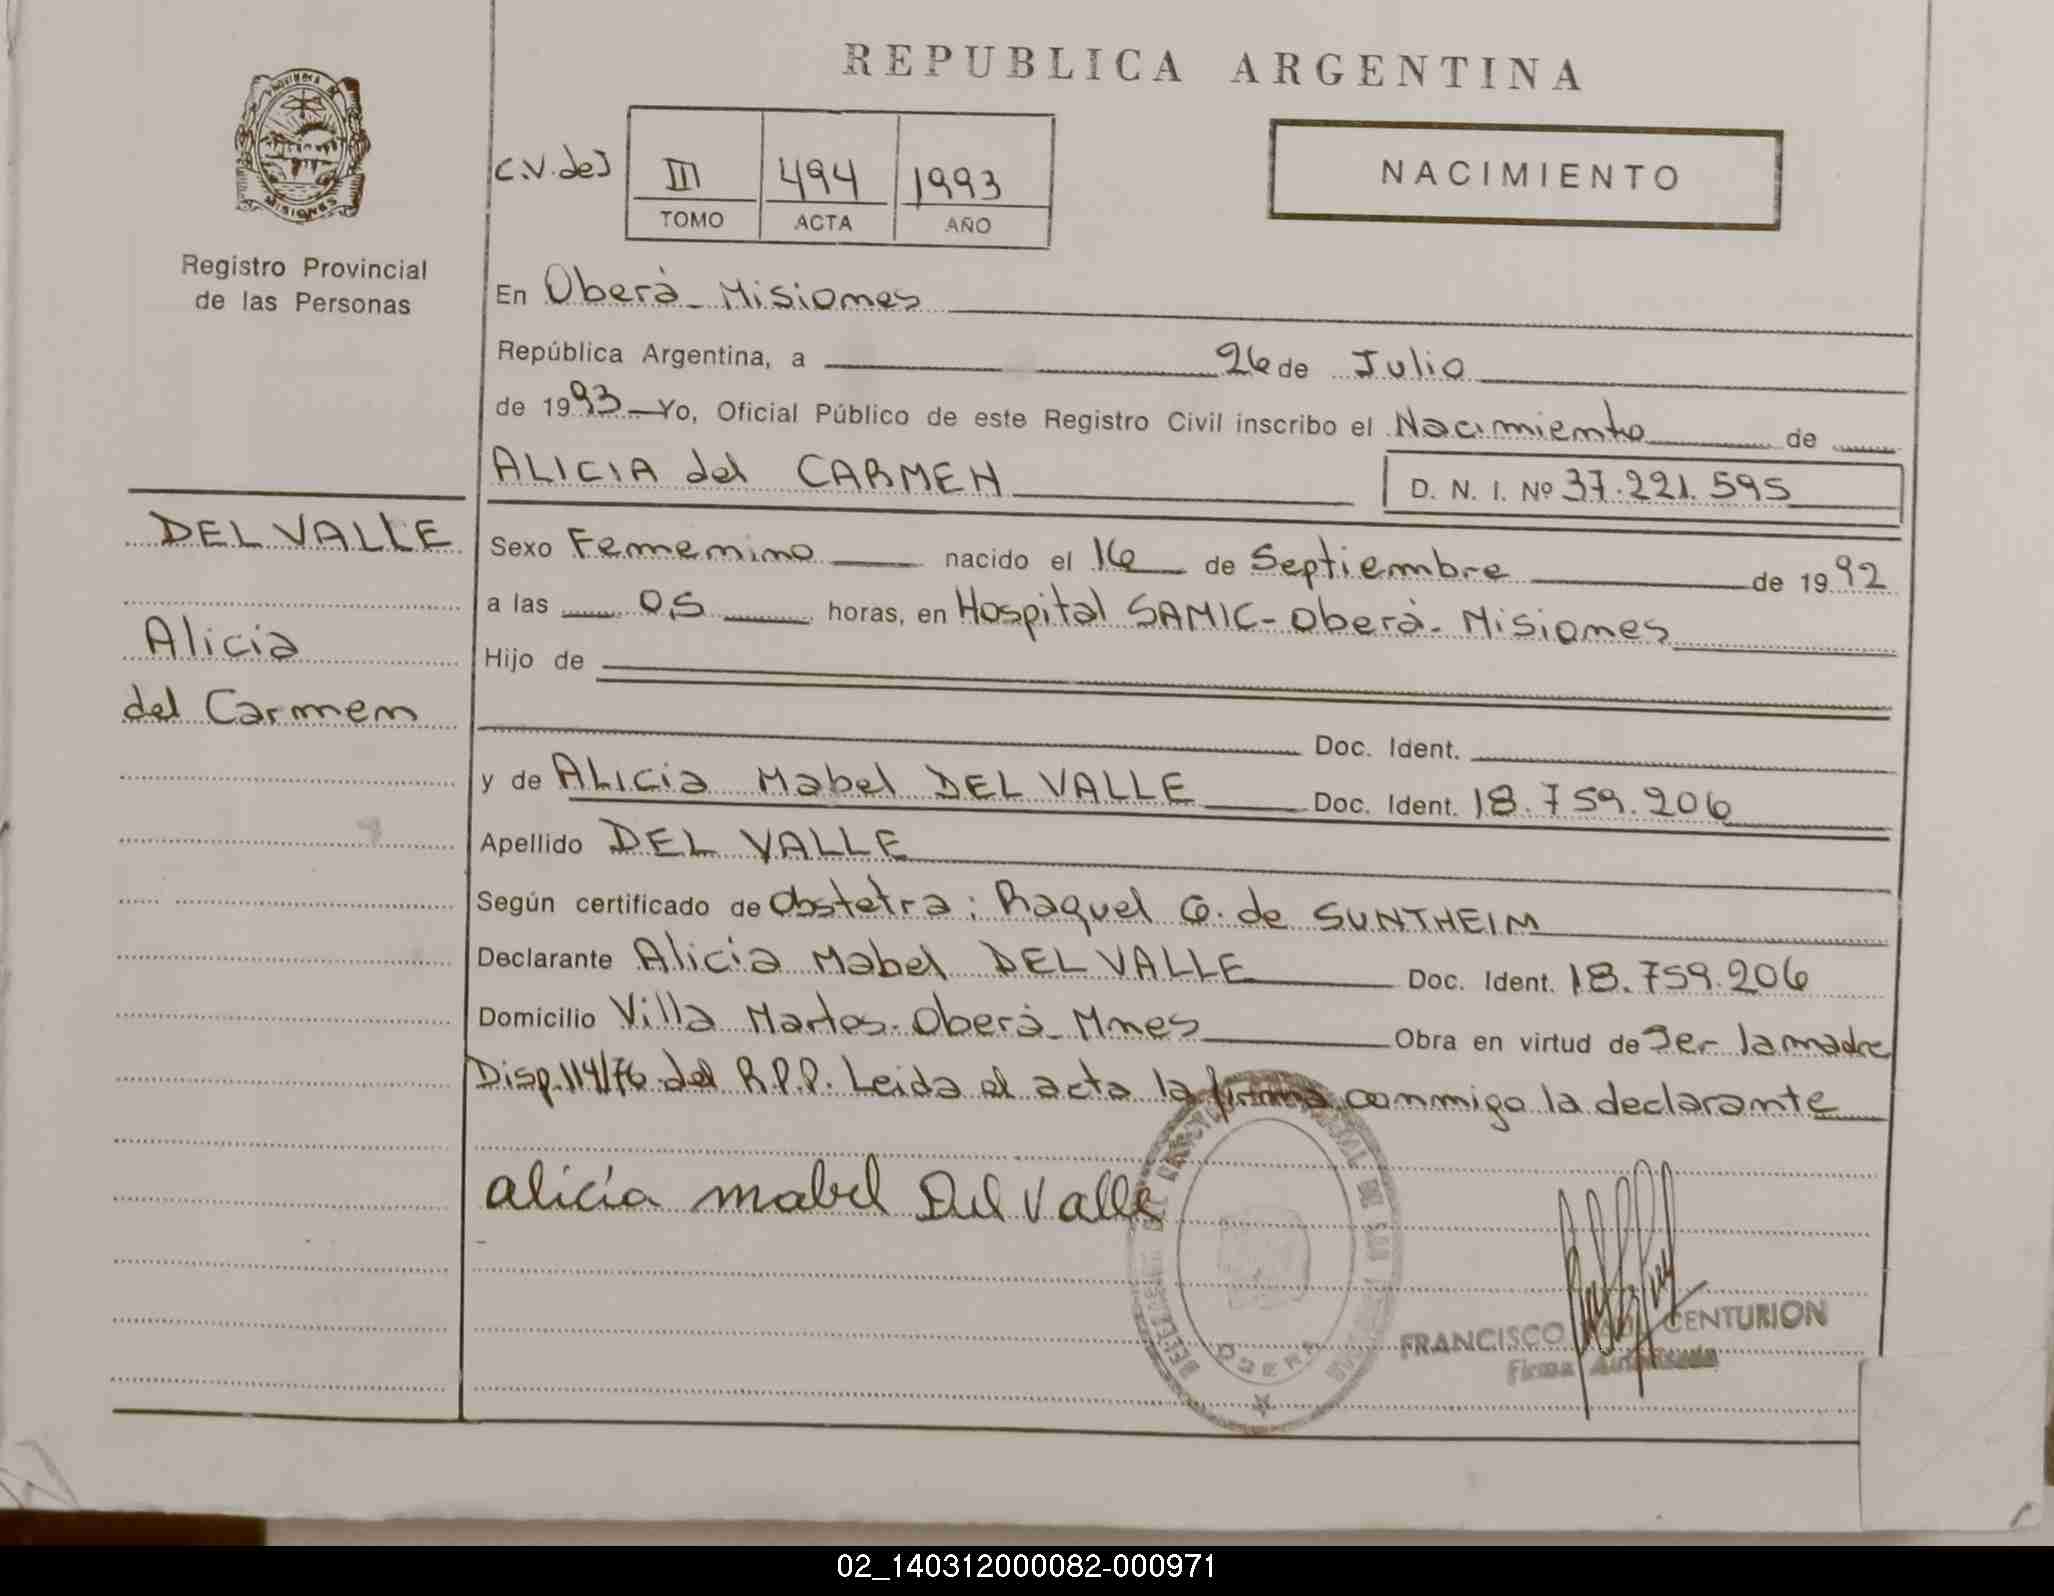 REPUBLICA ARGENTINA
C.V. de J
III 494 1993
TOMO ACTA AÑO
NACIMIENTO
PROVINCIA DE
MISIONES
Registro Provincial
de las Personas
En Oberà - Misiones
República Argentina, a 26 de Julio
de 1993 Yo, Oficial Público de este Registro Civil inscribo el Nacimiento de
ALICIA del CARMEN D. N. I. Nº 37.221.595
DEL VALLE
Alicia
del Carmen
Sexo Femenino nacido el 16 de Septiembre de 1992
a las 0,5 horas, en Hospital SAMIC - Oberà - Misiones
Hijo de
Doc. Ident.
y de ALICIA Mabel DEL VALLE Doc. Ident. 18.759.206
Apellido DEL VALLE
Según certificado de Obstetra: Raquel G. de SUNTHEIM
Declarante Alicia Mabel DEL VALLE Doc. Ident. 18.759.206
Domicilio Villa Martos - Oberà - Mnes Obra en virtud de Ser la madre
Disp. 114/76 del R.P.P. Leida el acta la firma conmigo la declarante
alicia mabel Del Valle
OBERA
FRANCISCO CENTURION
Firma Autorizada
02_140312000082-000971